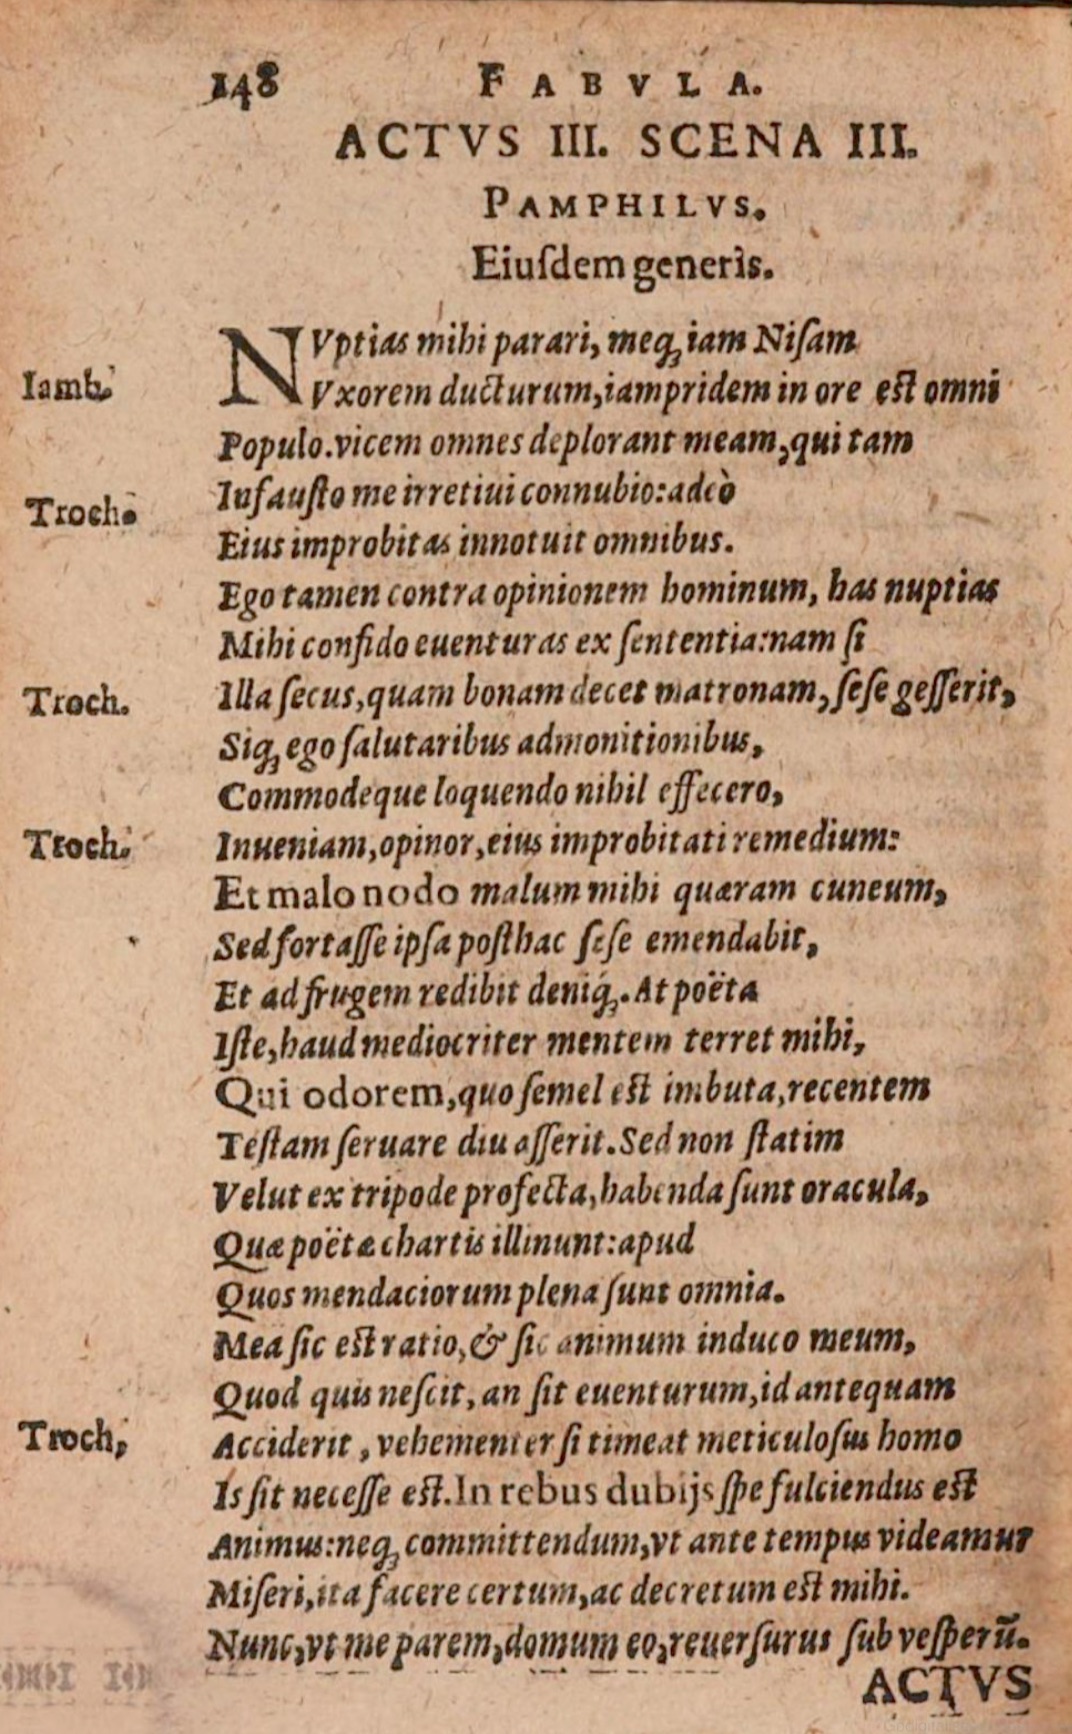 148 FABVLA.
ACTVS III. SCENA III.
PAMPHILVS.
Eiuſdem generis.
NVptias mihi parari, meq́; iam Niſam
Iamb. Vxorem ducturum, iampridem in ore est omni
Populo. vicem omnes deplorant meam, qui tam
Troch. Infauſto me irretiui connubio: adeò
Eius improbitas innotuit omnibus.
Ego tamen contra opinionem hominum, has nuptias
Mihi confido euenturas ex ſententia: nam ſi
Troch. Illa ſecus, quam bonam decet matronam, ſeſe geſſerit,
Siq́; ego ſalutaribus admonitionibus,
Commodeque loquendo nihil effecero,
Troch. Inueniam, opinor, eius improbitati remedium:
Et malo nodo malum mihi quæram cuneum,
Sed fortaſſe ipſa poſthac ſeſe emendabit,
Et ad frugem redibit deniq́;. At poëta
Iſte, haud mediocriter mentem terret mihi,
Qui odorem, quo ſemel est imbuta, recentem
Teſtam ſeruare diu aſſerit. Sed non ſtatim
Velut ex tripode profecta, habenda ſunt oracula,
Quæ poëtæ chartis illinunt: apud
Quos mendaciorum plena ſunt omnia.
Mea ſic est ratio, & ſic animum induco meum,
Quod quis neſcit, an ſit euenturum, id antequam
Troch, Acciderit, vehementer ſi timeat meticuloſus homo
Is ſit neceſſe est. In rebus dubijs ſpe fulciendus est
Animus: neq; committendum, vt ante tempus videamur
Miſeri, ita facere certum, ac decretum est mihi.
Nunc, vt me parem, domum eo, reuerſurus ſub veſperũ.
ACTVS